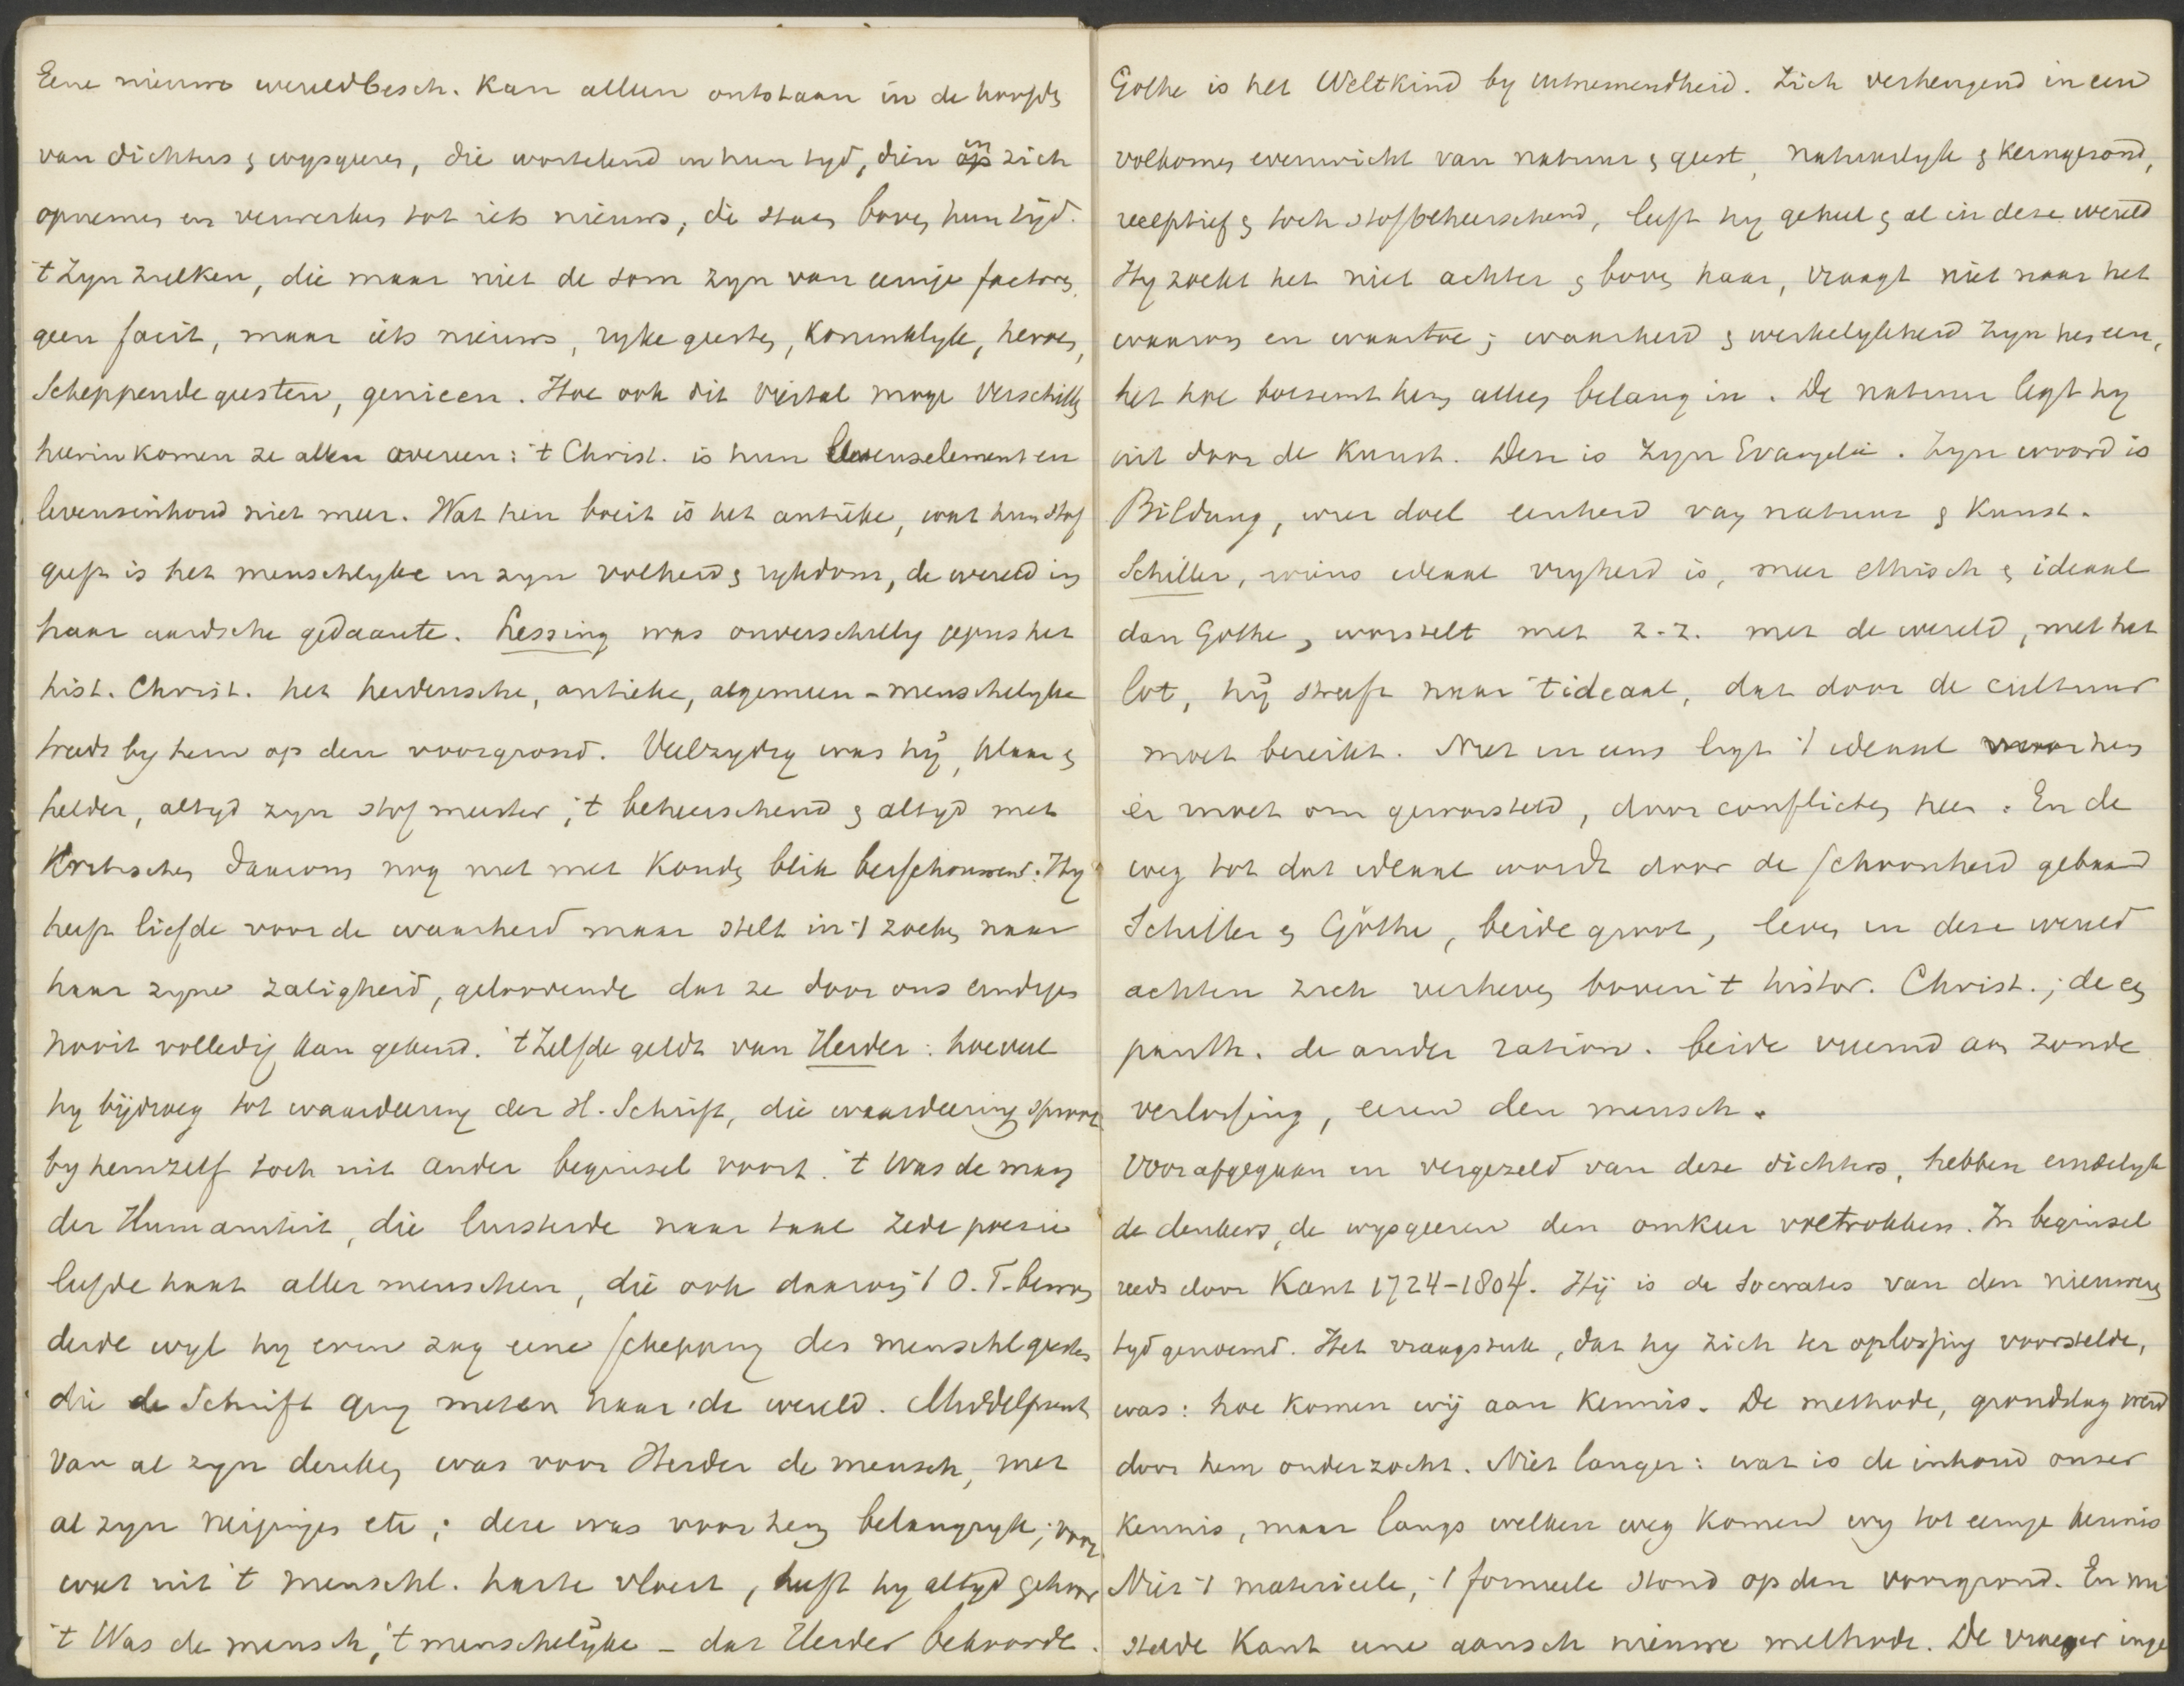 Eene nieuwe wereldbesch. kan alleen ontstaan in de hoofden
van dichters & wysgeeren, die wortelend in hun tyd, dien in zich
opnemen en verwerken tot iets nieuws, die staan boven hun tijd.
't Zyn zulken, die maar niet de som zyn van eenige factoren,
geen facit, maar iets nieuws, ryke geesten, koninklyke, heroen,
Scheppende geesten, genieen. Hoe ook dit viertal moge verschillen
hierin komen ze allen overeen: 't Christ. is hun levenselement en
levensinhoud niet meer. Wat hen boeit is het antieke, wat hun stof
geeft is het menschelyke in zyn volheid & rykdom, de wereld in
haar aardsche gedaante. Lessing was onverschillig jegens het
hist. Christ. het heidensche, antieke, algemeen-menschelyke
treedt by hem op den voorgrond. Veelzydig was hij, klaar &
helder, altyd zyn stof meester, 't beheerschend & altyd met
kritischen daarom nog niet met kouden blik beschouwend. Hy
heeft liefde voor de waarheid maar stelt in 't zoeken naar
haar zyne zaligheid, geloovende dat ze door ons eindigen
nooit volledig kan gekend. 't Zelfde geldt van Herder: hoeveel
hy bijdroeg tot waardeering der H. Schrift, die waardeering sproot
by hemzelf toch uit ander beginsel voort. 't Was de man
der Humaniteit, die luisterde naar taal zede poesie
liefde haat aller menschen, die ook daarom 't O.T. bewon
derde wyl hy erin zag eene schepping des menschl geestes
die de Schrift ging meten naar de wereld. Middelpunt
van al zyn denken was voor Herder de mensch, met
al zyn neigingen etc; deze was voor hem belangryk; voor
wat uit 't menschl. harte vloeit, heeft hy altyd gehoor
't Was de mensch, 't menschelijke – dat Herder bekoorde.
Göthe is het Weltkind by uitnemendheid. Zich verheugend in een
volkomen evenwicht van natuur & geest, natuurlyk & kerngezond,
receptief & toch stofbeheerschend, leeft hy geheel & al in deze wereld
Hy zoekt het niet achter & boven haar, vraagt niet naar het
waarom en waartoe; waarheid & werkelykheid zyn hem een,
het hoe boezemt hem alleen belang in. De natuur legt hy
uit door de Kunst. Deze is zyn Evangelie. Zyn woord is
Bildung, wier doel eenheid van natuur & Kunst.
Schiller, wiens ideaal vryheid is, meer ethisch & ideaal
dan Göthe, worstelt met z.z. met de wereld, met het
lot, hij streeft naar 't ideaal, dat door de cultuur
moet bereikt. Niet in ons ligt 't ideaal voor hem
er moet om geworsteld, door conflicten heen. En de
weg tot dat ideaal wordt door de schoonheid gebaand
Schiller & Göthe, beide groot, leven in deze wereld
achten zich verheven boven 't histor. Christ.; de een
panth. de ander ration. beide vreemd aan zonde
verlossing, eeren den mensch.
Voorafgegaan en vergezeld van deze dichters, hebben eindelyk
de denkers, de wysgeeren den omkeer voltrokken. In beginsel
reeds door Kant 1724–1804. Hij is de Socrates van den nieuweren
tyd genoemd. Het vraagstuk, dat hy zich ter oplossing voorstelde,
was: hoe komen wij aan kennis. De methode, grondslag werd
door hem onderzocht. Niet langer: wat is de inhoud onzer
kennis, maar langs welken weg komen wy tot eenige kennis
Niet 't materieele, 't formeele stond op den voorgrond. En nu
stelde Kant eene gansch nieuwe methode. De vroeger inge